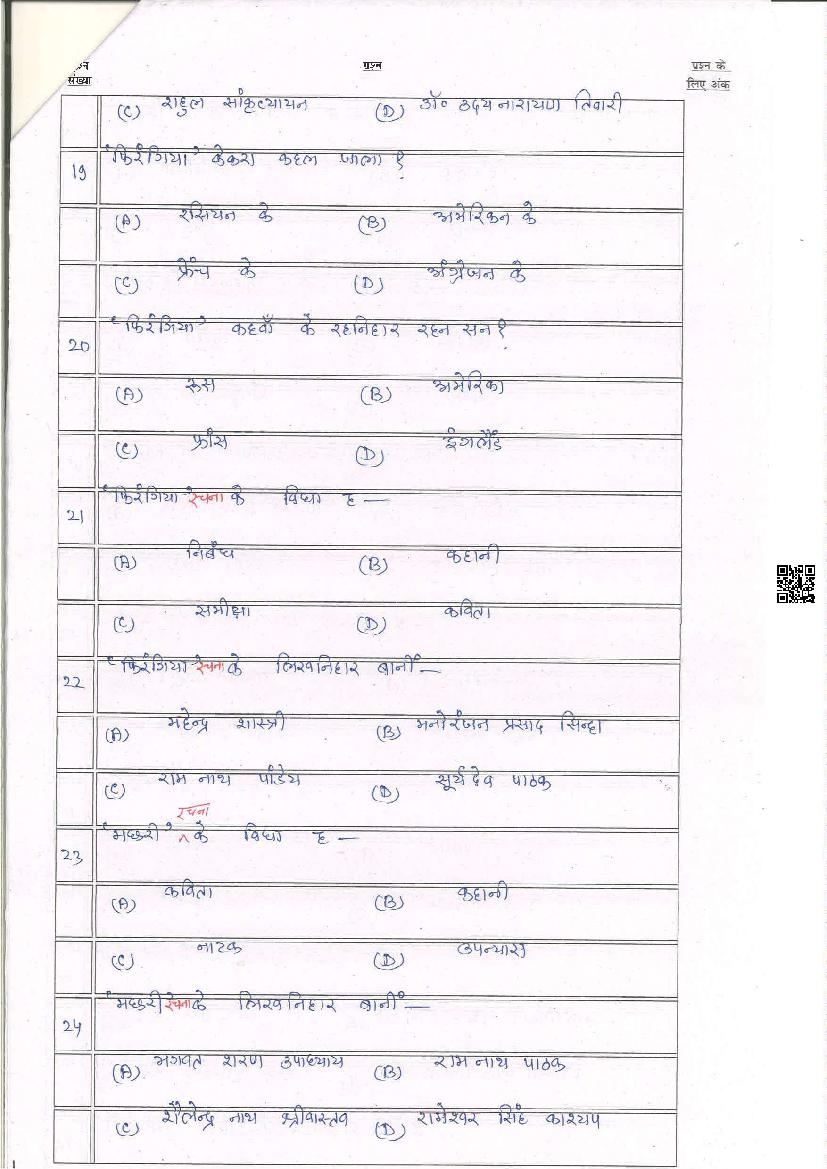 प्रश्न प्रश्न के
संख्या लिए अंक
(C) राहुल सांकृत्यायन (D) डॉ० उदय नारायण तिवारी
19 'फिरंगिया' केकरा कहल जाला ?
(A) रसियन के (B) अमेरिकन के
(C) फ्रेंच के (D) अंग्रेजन के
20 'फिरंगिया' कहवाँ के रहनिहार रहन सन ?
(A) रूस (B) अमेरिका
(C) फ्रांस (D) इंगलैंड
21 'फिरंगिया' रचना के विधा ह —
(A) निबंध (B) कहानी
(C) समीक्षा (D) कविता
22 'फिरंगिया' रचना के लिखनिहार बानीं —
(A) महेन्द्र शास्त्री (B) मनोरंजन प्रसाद सिन्हा
(C) राम नाथ पांडेय (D) सूर्यदेव पाठक
रचना
23 'मछरी' ^ के विधा ह —
(A) कविता (B) कहानी
(C) नाटक (D) उपन्यास
24 'मछरी' रचना के लिखनिहार बानीं —
(A) भगवत शरण उपाध्याय (B) राम नाथ पाठक
(C) शैलेन्द्र नाथ श्रीवास्तव (D) रामेश्वर सिंह काश्यप